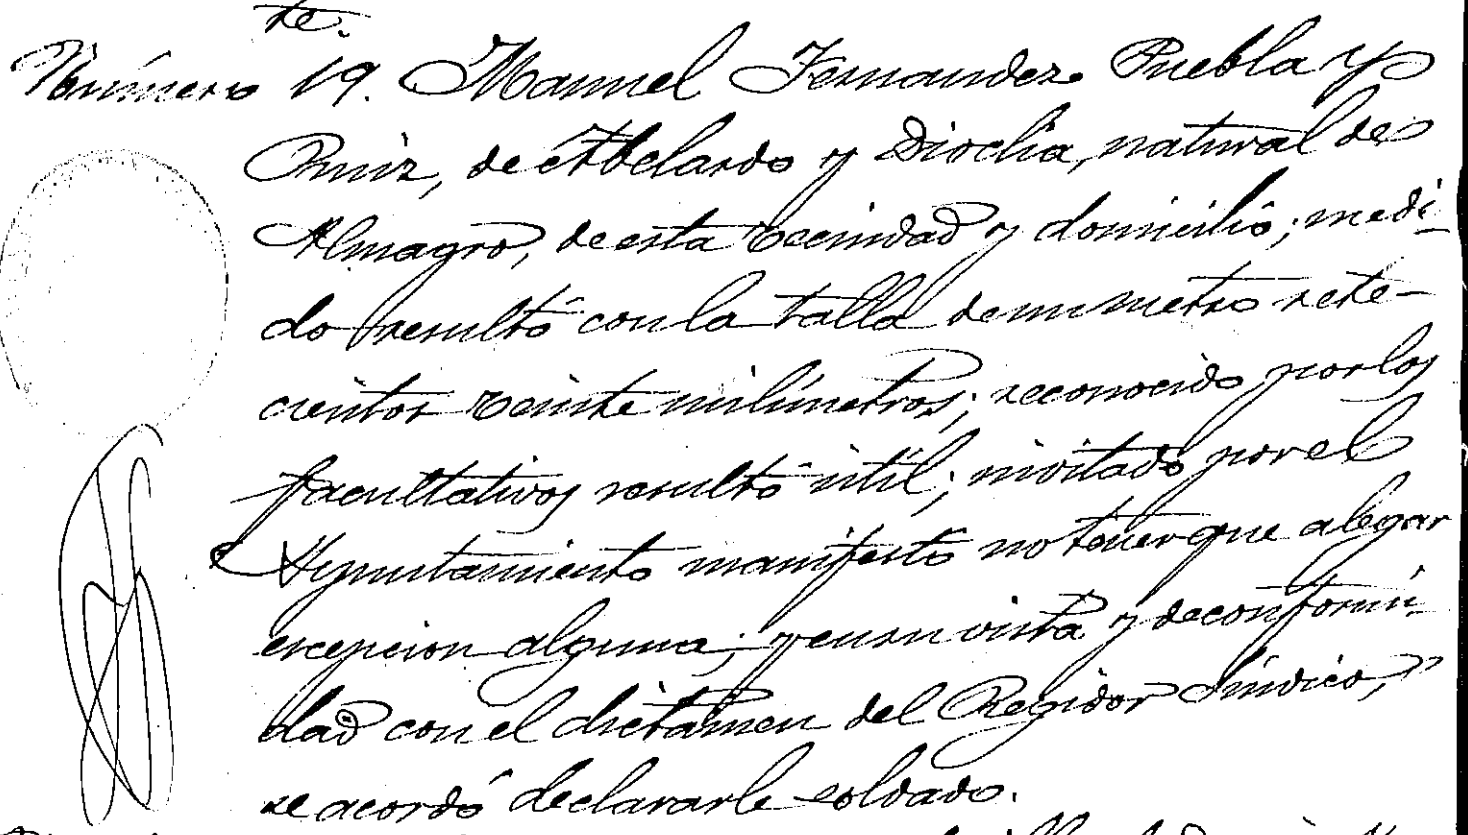 te.
Número 19. Manuel Fernandez Puebla y
Ruiz, de Abelardo y Dioclia, natural de
Almagro, de esta vecindad y domicilio; medi-
do resultó con la talla de un metro sete-
cientos veinte milímetros; reconocido por los
facultativos resultó útil; invitado por el
Ayuntamiento manifestó no tener que alegar
excepcion alguna; y en su vista y de conformi-
dad con el dictamen del Regidor Síndico,
se acordó declararle soldado.